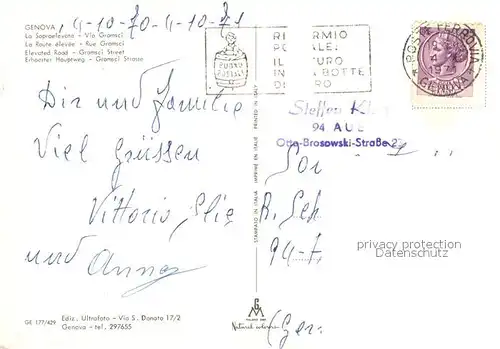 GENOVA, 4-10-70-4-10-71
La Sopraelevata - Via Gramsci
La Route élevée - Rue Gramsci
Elevated Road - Gramsci Street
Erhohter Hauptweg - Gramsci Strasse
Dir und familie
Viel Grüssen
Vittorio, Elie
und Anna
GE 177/429
Ediz. Ultrafoto - Via S. Donato 17/2
Genova - tel. 297655
STAMPATO IN ITALIA
IMPRIMÉ EN ITALIE
PRINTED IN ITALY
MILANO
RI
RMIO
PO
ALE:
IL
TURO
IN
A BOTTE
DI
RO
POSTE FERROVIA
GENOVA
Steffen Kl
94 AUE
Otto-Brosowski-Straße 27
R. Se
94-7
(Ger
privacy protection
Datenschutz